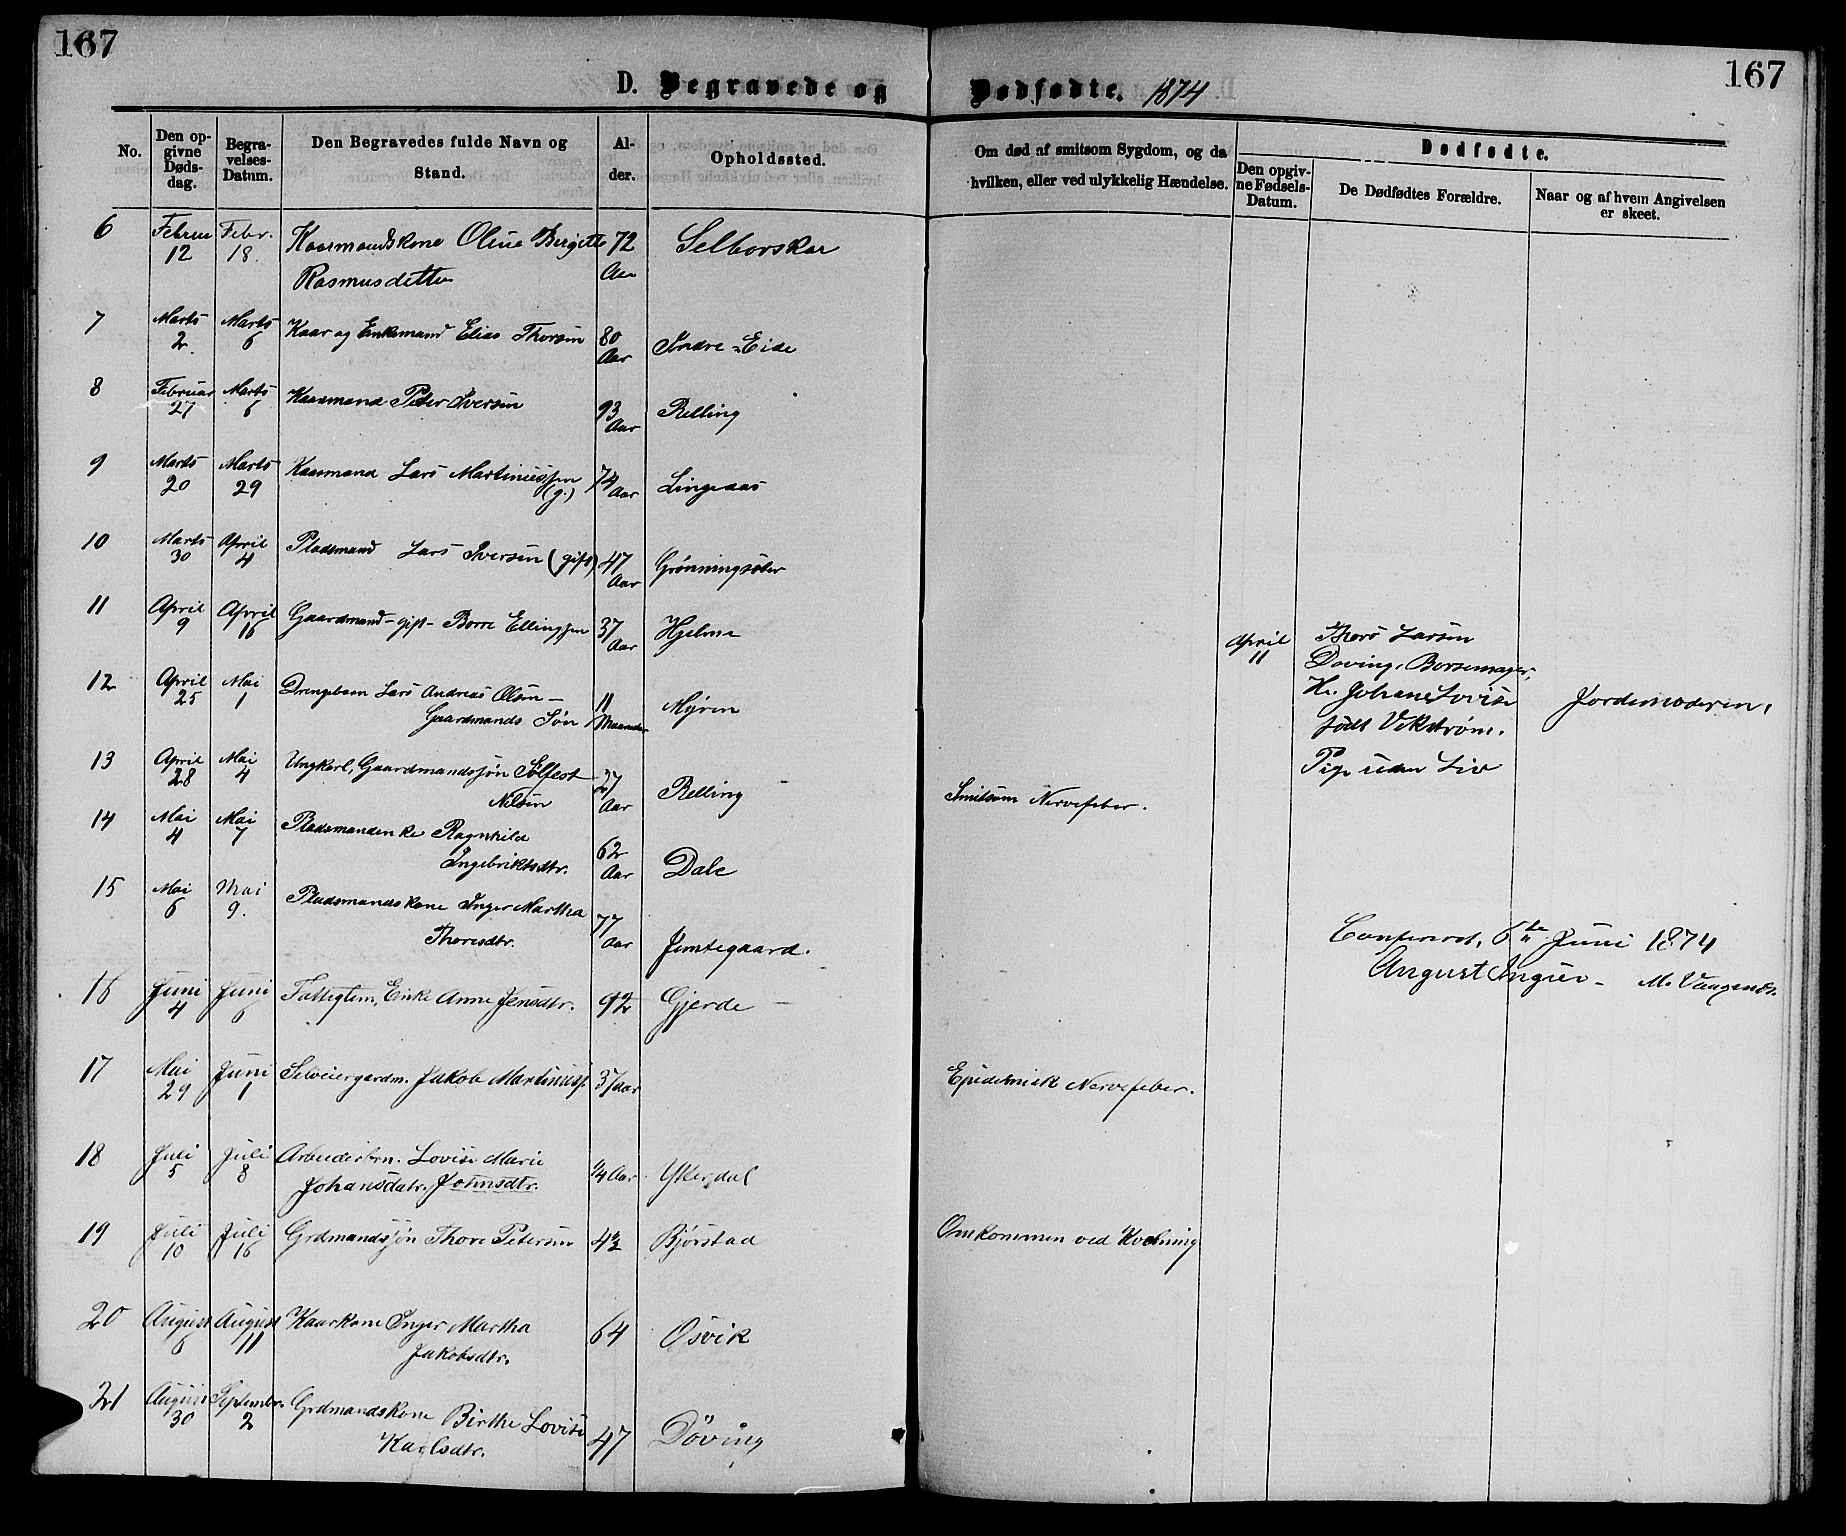 167
167
D. Begravede og Dødfødte. 1874
No.
Den op-
givne
Døds-
dag.
Begra-
velses-
Datum.
Den Begravedes fulde Navn og
Stand.
Al-
der.
Opholdssted.
Om død af smitsom Sygdom, og da
hvilken, eller ved ulykkelig Hændelse.
Dødfødte.
Den opgiv-
ne Fødsels-
Datum.
De Dødfødtes Forældre.
Naar og af hvem Angivelsen
er skeet.
6 Februar 12 Febr. 18. Kaarmandskone Oline Birgitte 72 Aar Selborskar
Rasmusdetter
7 Marts 2. Marts 6 Kaar og Enkemand Elias Thorsen 80 Aar Indre-Eide
8 Februar 27 Marts 6 Kaarmand Peter Iversen 93 Aar Relling
9 Marts 20 Marts 29 Kaarmand Lars Martinussen 74 Aar Lingeaas
(g.)
10 Marts 30 April 4 Pladsmand Lars Iversen (gift) 47 Aar Grønningsæter
11 April 9 April 16 Gaardmand - gift - Borre Ellingsen 37 Aar Hjelme
April 11 Thors Larsen
Døving, Børsemager,
H. Johane Lovise
født Vikstrøm.
Pige uden Liv
Jordemoderen,
12 April 25 Mai 1 Drengebarn Lars Andreas Olsen - 11 Maaneder Myren
Gaardmands Søn
13 April 28 Mai 4 Ungkarl, Gaardmandssøn Sølfest 27 Aar Relling Smitsom Nervefeber.
Nilsen
14 Mai 4 Mai 7 Pladsmandenke Ragnhild 62 Aar Dale
Ingebriktsdtr.
15 Mai 6 Mai 9. Pladsmandskone Inger Martha 77 Aar Jemtegaard.
Thoresdtr.
Confereret, 6te Juni 1874
August Unger - M. Vaagenes.
16 Juni 4 Juni 6 Fattiglem, Enke Anne Jensdtr. 92 Gjerde
17 Mai 29 Juni 1 Selveiergardm. Jakob Martinuss. 37 aar Epidemisk Nervefeber.
18 Juli 5 Juli 8 Arbeiderbrn. Lovise Marie 1/4 Aar Ykerdal
Johansdatr. Johnsdtr.
19 Juli 10 Juli 16 Grdmandssøn Thore Petersen 43 Bjørstad Omkommen ved Kvelning
20 August 6 August 11 Kaarkone Inger Martha 64 Øsvik
Jakobsdtr.
21 August 30 Septembr. 2 Grdmandskone Birthe Lovise 47 Døving
Karlsdtr.